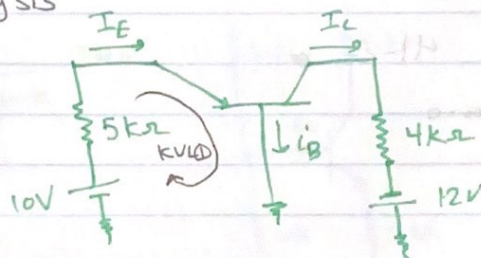 ysis
IE IC
5kΩ
KVL①
iB
4kΩ
10V
12V